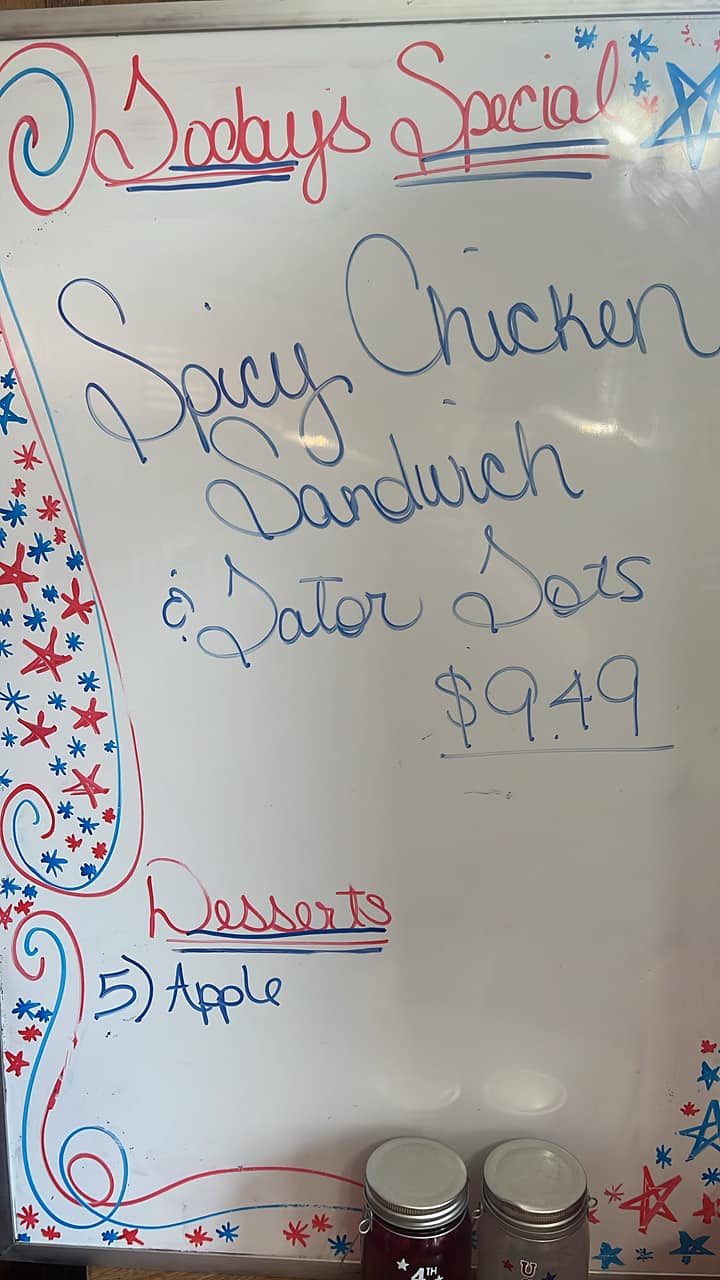 Todays Special
Spicy Chicken
Sandwich
& Tator Tots
$9.49
Desserts
5) Apple
4TH
U